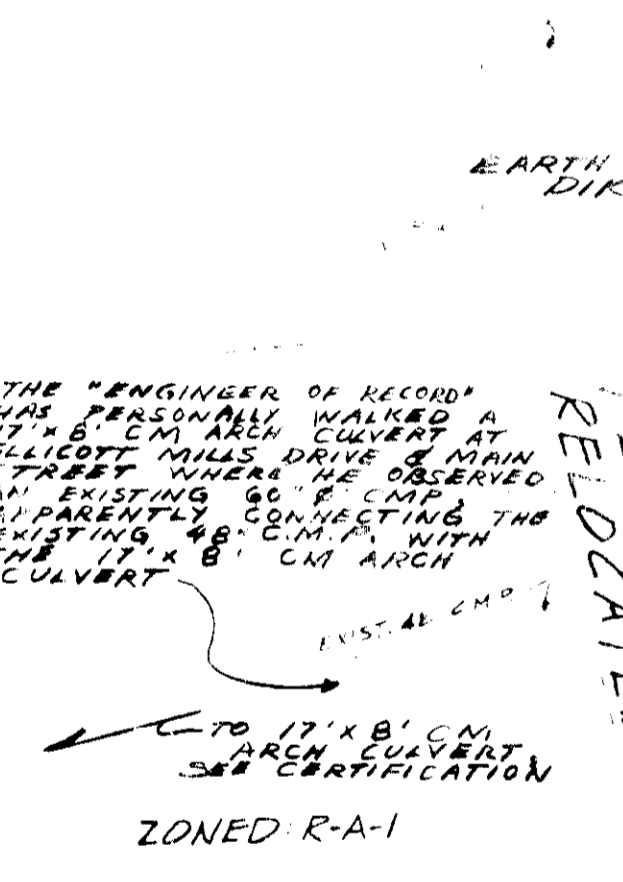 EARTH
DIK
THE "ENGINEER OF RECORD"
HAS PERSONALLY WALKED A
17'x 8' CM ARCH CULVERT AT
ELLICOTT MILLS DRIVE & MAIN
STREET WHERE HE OBSERVED
AN EXISTING 60"⌀ CMP,
APPARENTLY CONNECTING THE
EXISTING 48" C.M.P. WITH
THE 17'x 8' CM ARCH
CULVERT
EXIST. 48" CMP
RELOCATE
TO 17'x 8' CM
ARCH CULVERT,
SEE CERTIFICATION
ZONED: R-A-1